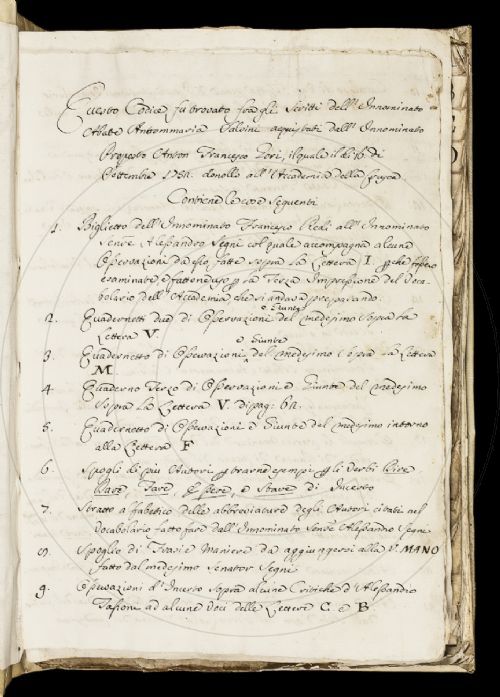 Questo Codice fu trovato fra gli Scritti dell'Innominato
Abate Antommaria Salvini acquistati dall'Innominato
Proposto Anton Francesco Gori, il quale il dì 16 di
Settembre donollo all'Accademia della Crusca
Contiene le cose seguenti
1. Biglietto dell'Innominato Francesco Redi all'Innominato
Senre. Alessandro Segni col quale accompagna alcune
Osservazioni da esso fatte sopra la Lettera I. ꝑche fossero
esaminate e fattone uso ꝑ la Terza Impressione del Voca-
bolario dell'Accademia che si andava preparando.
2. Quadernetti due di Osservazioni e Giunte del medesimo sopra la
Lettera V.
3. Quadernetto di Osservazioni e Giunte del medesimo sopra la Lettera
M.
4. Quaderno Terzo di Osservazioni e Giunte del medesimo
sopra la Lettera V. di pag: 62.
5. Quadernetto di Osservazioni e Giunte del medesimo intorno
alla Lettera F
6. Spogli di più Autori ꝑ trarne esempi ꝑ gli Verbi Dire
Dare, Fare, Essere, e Stare di Incerto
7. Stratto alfabetico delle abbreviature degli Autori citati nel
Vocabolario fatto fare dall'Innominato Senre. Alessandro Segni
8. Spoglio di Frasi e Maniere da aggiugnersi alla V. MANO
fatto dal medesimo Senator Segni
9. Osservazioni d'Incerto sopra alcune Critiche d'Alessandro
Tassoni ad alcune Voci delle Lettere C. e B